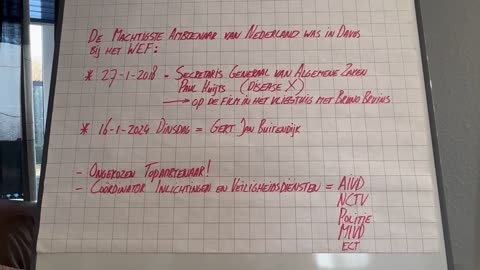 De Machtigste Ambtenaar van Nederland was in Davos
Bij het WEF:
* 27-1-2018 - Secretaris Generaal van Algemene Zaken
Paul Huijts (Disease X)
→ op de film in het vliegtuig met Bruno Bruins
* 16-1-2024 Dinsdag = Gert Jan Buitendijk
- Ongekozen Topambtenaar!
- Coördinator Inlichtingen en Veiligheidsdiensten = AIVD
NCTV
Politie
MIVD
ect